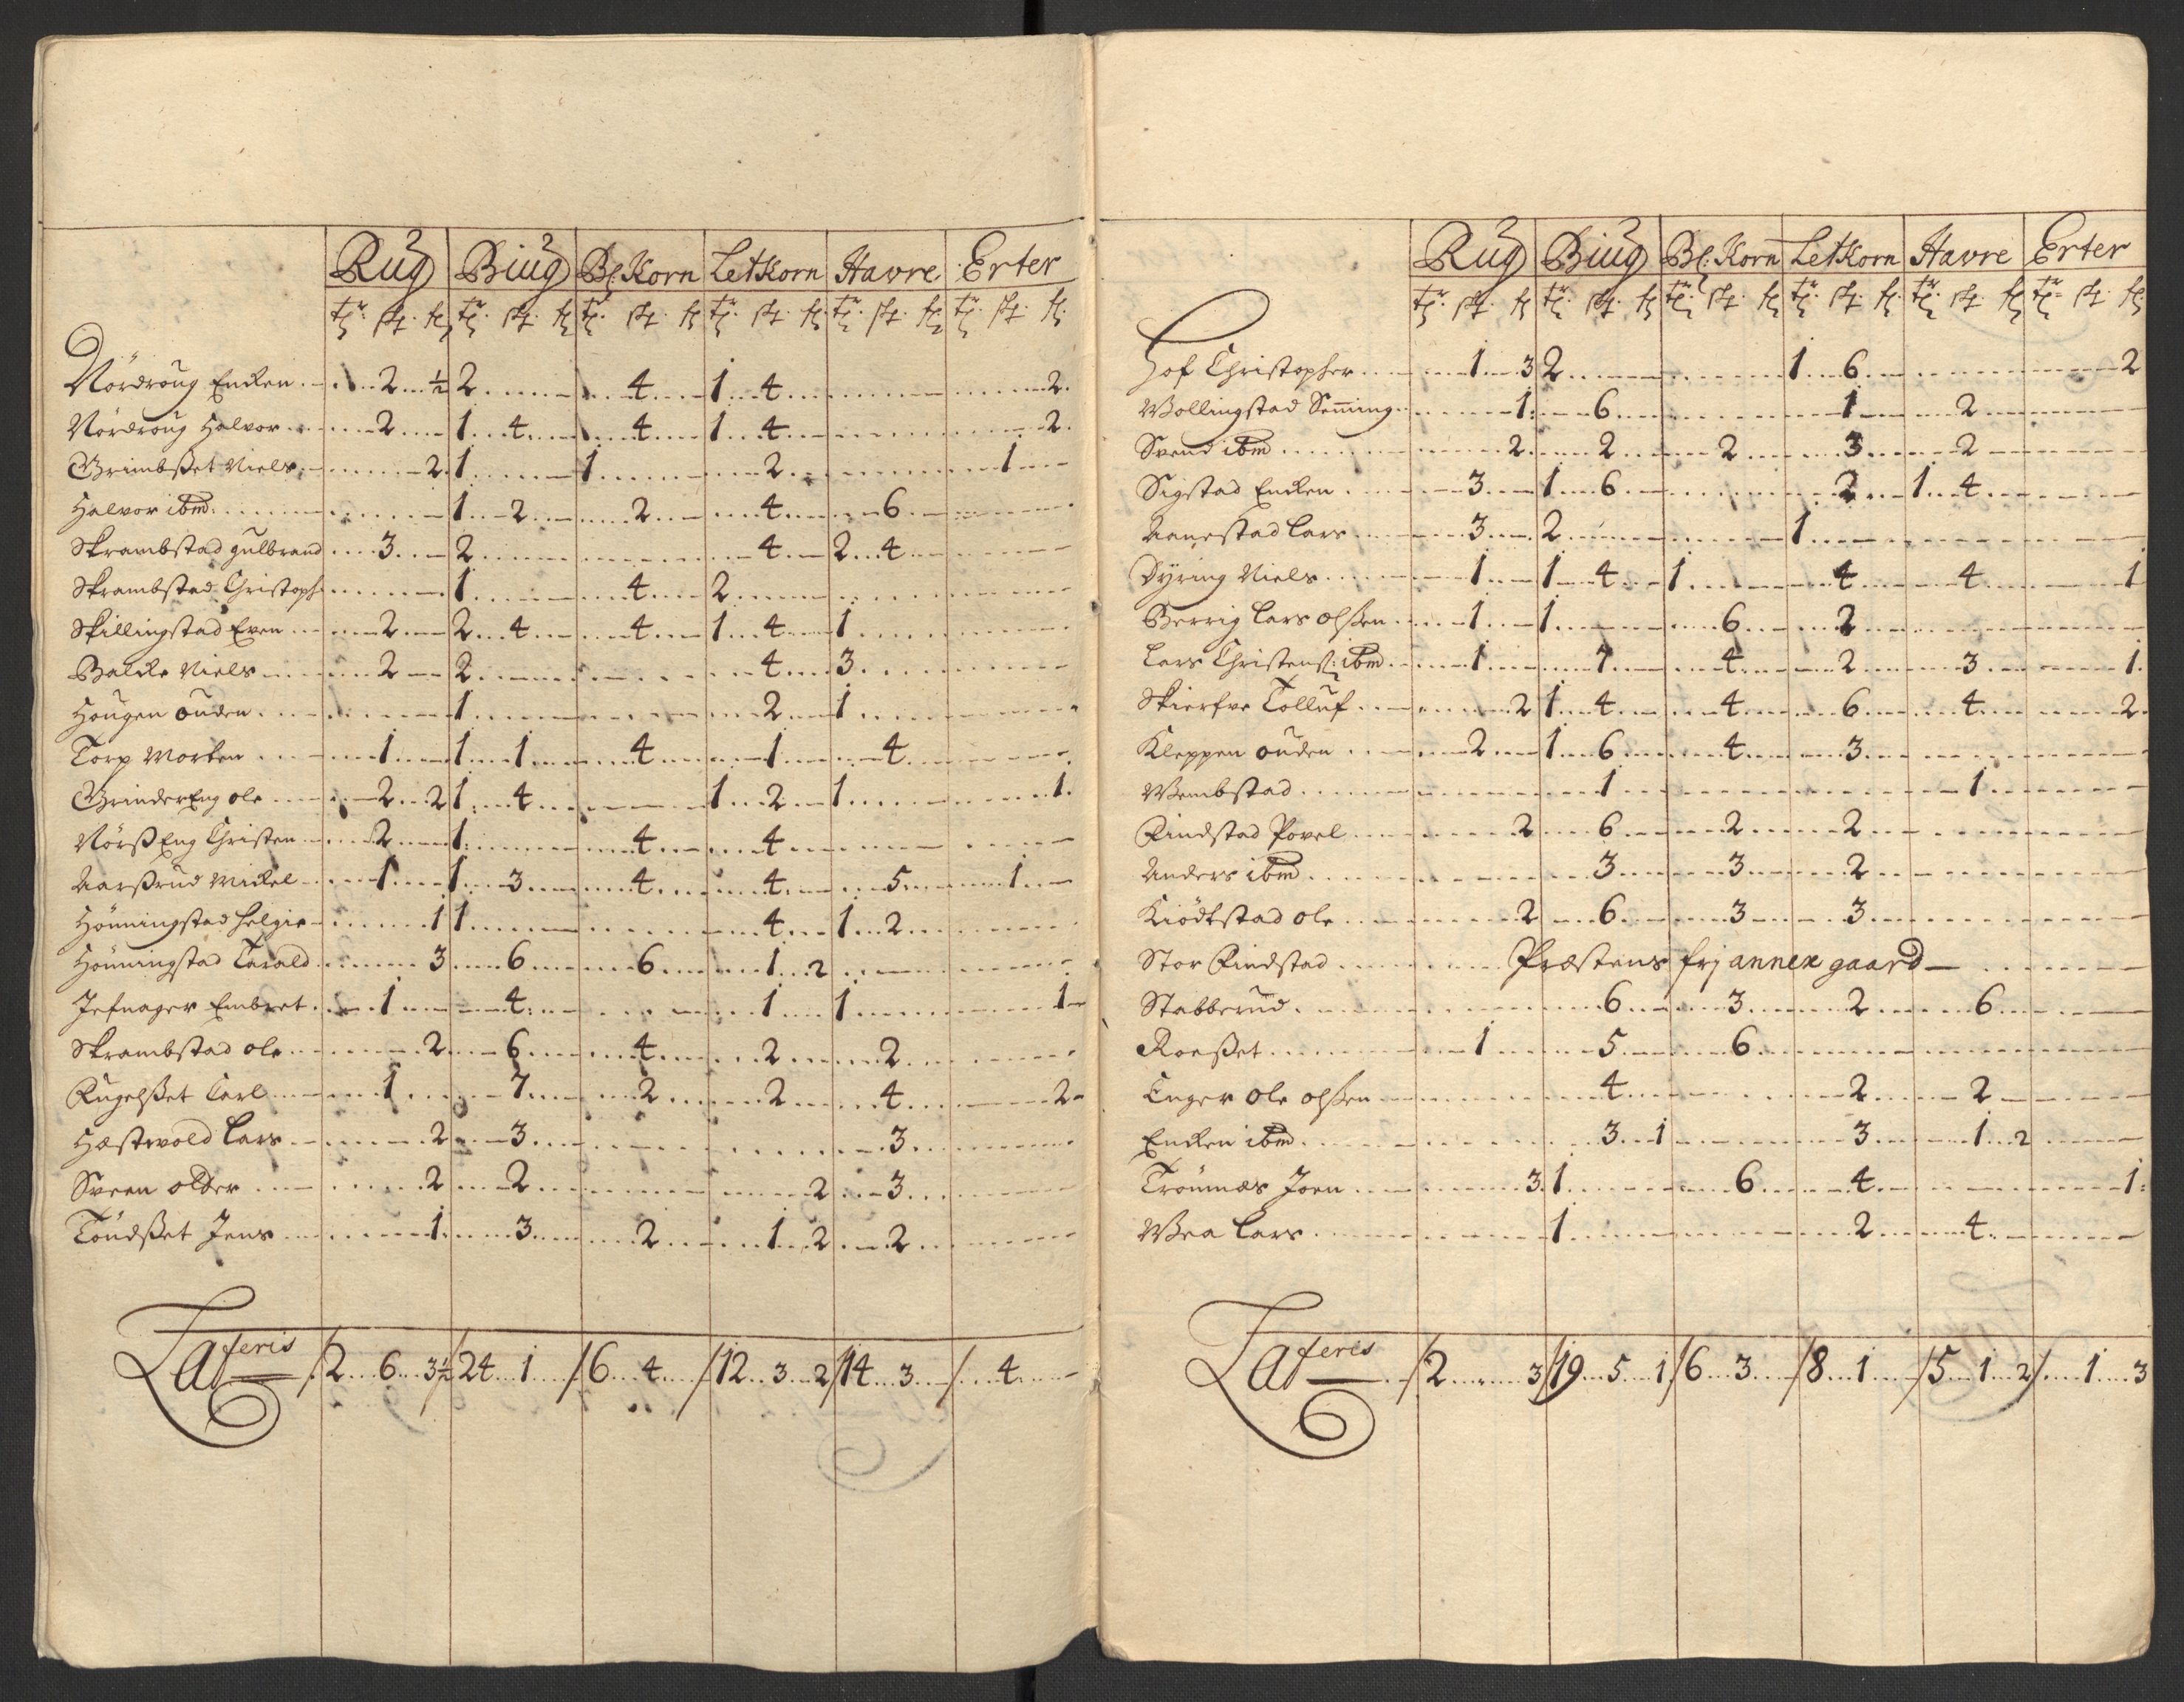 Rug Biug Bl: Korn LetKorn Havre Erter
Nördroug Enchen 2 ½ 2 4 1 4 2
Nördroug Halvor 2 1 4 4 1 4 2
Grimbsset Niels 2 1 1 2 1
Halvor ibm 1 2 2 4 6
Skrambstad gulbrand 3 2 4 2 4
Skrambstad Christoph 1 4 2
Skillingstad Even 2 2 4 4 1 4 1
Balche Niels 2 2 4 3
Hougen Ouden 1 2 1
Torp Morten 1 1 1 4 1 4
GrinderEng ole 2 2 1 4 1 2 1 1
NörssEng Christen 2 1 4 4
Aarssrud Michel 1 1 3 4 4 5 1
Hönningstad helgie 1 1 4 1 2
Hönningstad Tarald 3 6 6 1 2
Jefnager Embret 1 4 1 1 1
Skrambstad ole 2 6 4 2 2
Fugelsset Carl 1 7 2 2 4 2
Hæstvold Lars 2 3 3
Sveen older 2 2 2 3
Töndsset Jens 1 3 2 1 2 2
Lateris /2 6 3½ /24 1 /6 4 /12 3 2 /14 3 / 4
Rug Biug Bl: Korn LetKorn Havre Erter
Hof Christopher 1 3 2 1 6 2
Wollingstad Semming 1 6 1 2
Svend ibm 2 2 2 3 2
Sigstad Enchen 3 1 6 2 1 4
Aanestad Lars 3 2 1
Dyring Niels 1 1 4 1 4 4 1
Berrig Lars olssen 1 1 6 2
Lars Christens: ibm 1 7 4 2 3 1
Skierfve Tolluf 2 1 4 4 6 4 2
Kleppen ouden 2 1 6 4 3
Wembstad 1 1
Findstad Povel 2 6 2 2
Anders ibm 3 3 2
Kiödtstad ole 2 6 3 3
Stor Findstad Præstens frj annex gaard
Stabberud 6 3 2 6
Roesset 1 5 6
Enger ole olssen 4 2 2
Enchen ibm 3 1 3 1 2
Trönnæs Joen 3 1 6 4 1
Wea Lars 1 2 4
Lateris /2 3 /19 5 1 /6 3 /8 1 /5 1 2 / 1 3